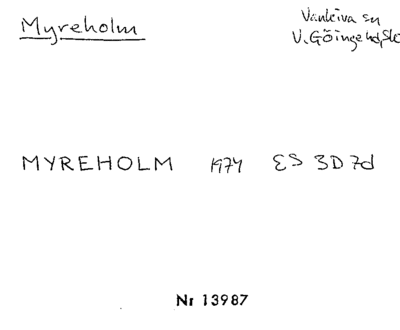 Myreholm
Vankiva sn
V. Göinge hd, Sk
MYREHOLM 1974 ES 3D 7d
Nr 13987